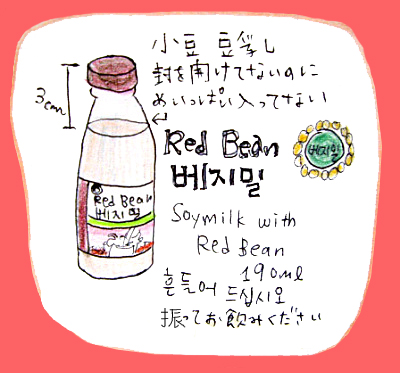 小豆 豆乳
封を開けてないのに
めいっぱい入ってない
3cm
Red Bean
베지밀
베지밀
Red Bean
베지밀
Soymilk with
Red Bean
190ml
흔들어 드십시오
振ってお飲みください